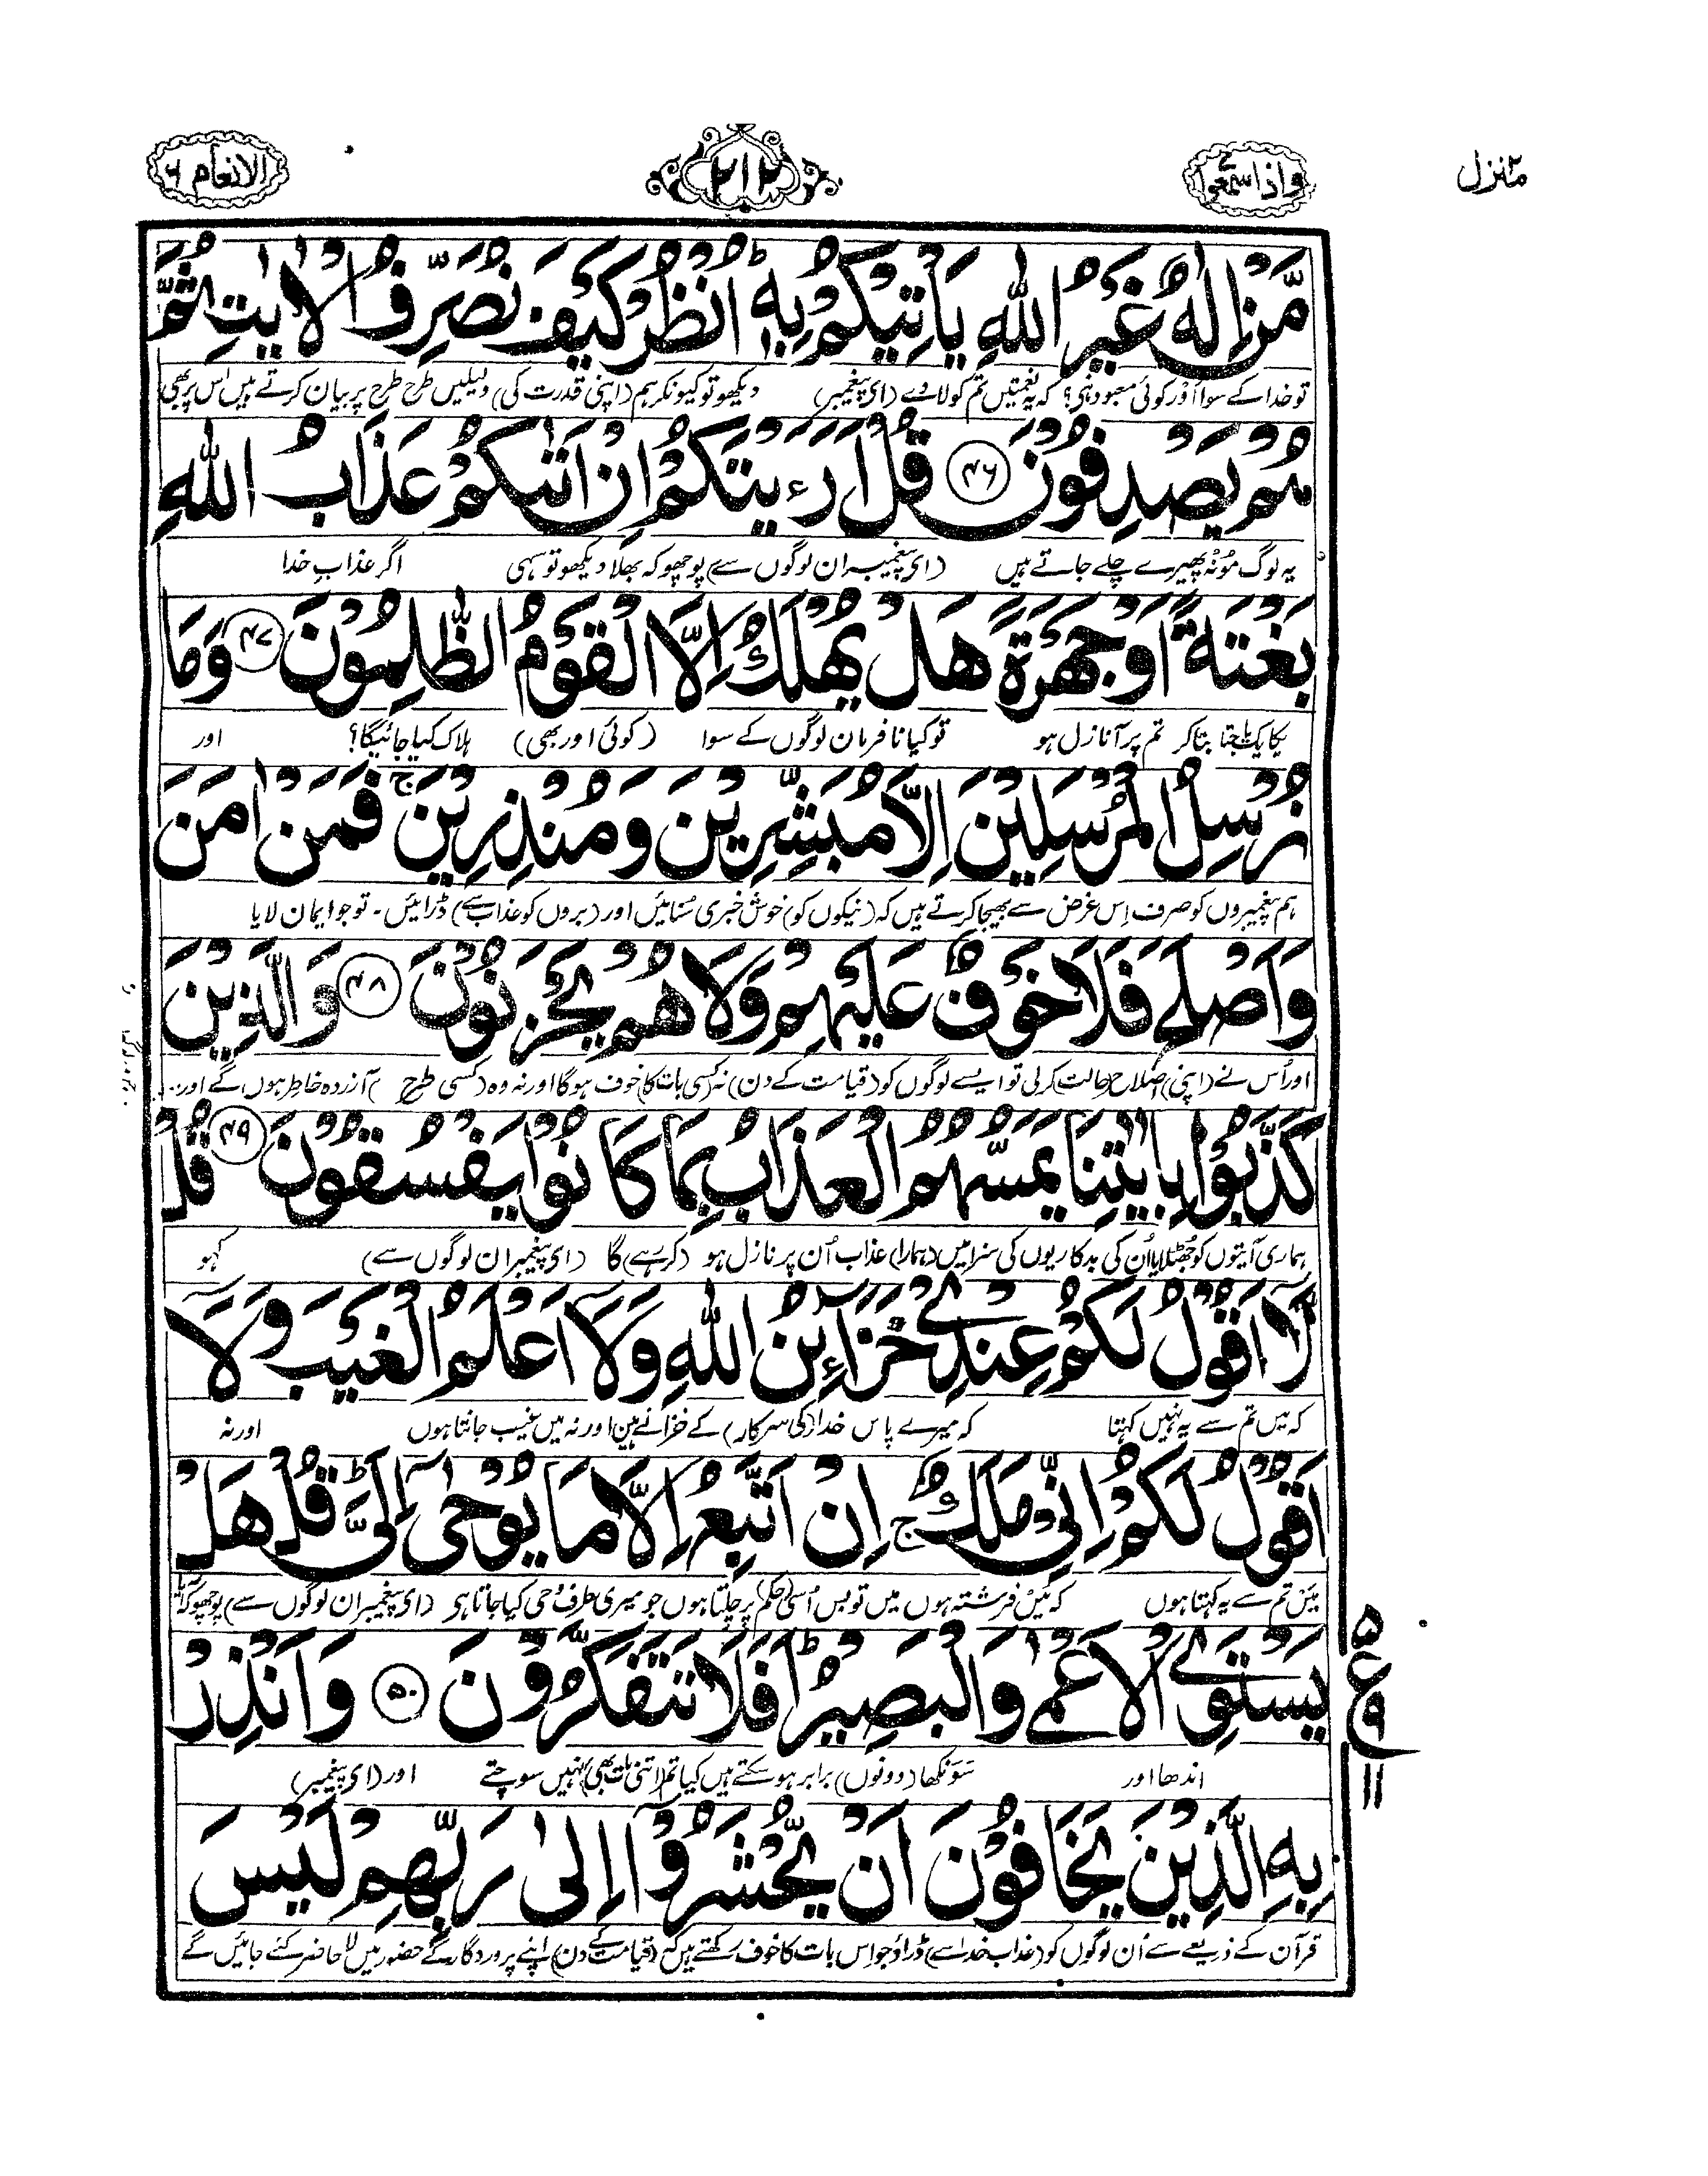 منزل ۲
واذاسمعوا ۷
۲۱۲
الانعام ۶
مَّنْ اِلٰهٌ غَيْرُ اللّٰهِ يَاْتِيْكُمْ بِهٖ ؕ اُنْظُرْ كَيْفَ نُصَرِّفُ الْاٰيٰتِ ثُمَّ
تو خدا کے سوا اَوْر کوئی معبود ہی؟ کہ یہ نعمتیں تم کو لا دے (ای پیغمبر) دیکھو تو کیونکر ہم (اپنی قدرت کی) دلیلیں طرح طرح پر بیان کرتے ہیں اس پر بھی
هُمْ يَصْدِفُوْنَ ۴۶ قُلْ اَرَءَيْتَكُمْ اِنْ اَتٰىكُمْ عَذَابُ اللّٰهِ
یہ لوگ مُونْہ پھیرے چلے جاتے ہیں (ای پیغمبر ان لوگوں سے) پوچھو کہ بھلا دیکھو تو سہی اگر عذابِ خدا
بَغْتَةً اَوْ جَهْرَةً هَلْ يُهْلَكُ اِلَّا الْقَوْمُ الظّٰلِمُوْنَ ۴۷ وَمَا
یکایک یا جتا بتا کر تم پر آ نازل ہو تو کیا نافرمان لوگوں کے سوا (کوئی اور بھی) ہلاک کیا جائیگا؟ اور
نُرْسِلُ الْمُرْسَلِيْنَ اِلَّا مُبَشِّرِيْنَ وَمُنْذِرِيْنَ ۚ فَمَنْ اٰمَنَ
ہم پیغمبروں کو صرف اِس غرض سے بھیجا کرتے ہیں کہ (نیکوں کو) خوش خبری سُنائیں اور (بروں کو عذاب سے) ڈرائیں ۔ تو جو ایمان لایا
وَاَصْلَحَ فَلَا خَوْفٌ عَلَيْهِمْ وَلَا هُمْ يَحْزَنُوْنَ ۴۸ وَالَّذِيْنَ
اور اُس نے (اپنی) اصلاح حالت کر لی تو ایسے لوگوں کو (قیامت کے دن) نہ کسی بات کا خوف ہو گا اور نہ وہ (کسی طرح) آزردہ خاطر ہوں گے اور
كَذَّبُوْا بِاٰيٰتِنَا يَمَسُّهُمُ الْعَذَابُ بِمَا كَانُوْا يَفْسُقُوْنَ ۴۹ قُلْ
ہماری آیتوں کو جُھٹلایا اُن کی بدکاریوں کی سزا میں (ہمارا) عذاب اُن پر نازل ہو (کر رہے) گا (ای پیغمبر ان لوگوں سے) کہو
لَّاۤ اَقُوْلُ لَكُمْ عِنْدِيْ خَزَآئِنُ اللّٰهِ وَلَاۤ اَعْلَمُ الْغَيْبَ وَلَاۤ
کہ میں تم سے یہ نہیں کہتا کہ میرے پاس خدا (کی سرکار) کے خزانے ہین اور نہ میں غیب جانتا ہوں اور نہ
اَقُوْلُ لَكُمْ اِنِّيْ مَلَكٌ ۚ اِنْ اَتَّبِعُ اِلَّا مَا يُوْحٰۤى اِلَيَّ ؕ قُلْ هَلْ
میَں تم سے یہ کہتا ہوں کہ میَں فرشتہ ہوں میں تو بس اُسی (حکم) پر چلتا ہوں جو میری طرف وحی کیا جاتا ہی (ای پیغمبر ان لوگوں سے) پوچھو کہ آیا
يَسْتَوِي الْاَعْمٰى وَالْبَصِيْرُ ؕ اَفَلَا تَتَفَكَّرُوْنَ ۵۰ وَاَنْذِرْ
اندھا اور سوَنکھا (دونوں) برابر ہو سکتے ہیں کیا تم (اتنی بات بھی) نہیں سوچتے اور (ای پیغمبر)
بِهِ الَّذِيْنَ يَخَافُوْنَ اَنْ يُّحْشَرُوْۤا اِلٰى رَبِّهِمْ لَيْسَ
قرآن کے ذریعے سے اُن لوگوں کو (عذاب خدا سے) ڈراؤ جو اِس بات کا خوف رکھتے ہیں کہ (قیامت کے دن) اپنے پروردگار کے حضور میں لا حاضر کئے جائیں گے
۵
ع
۹
۱۱